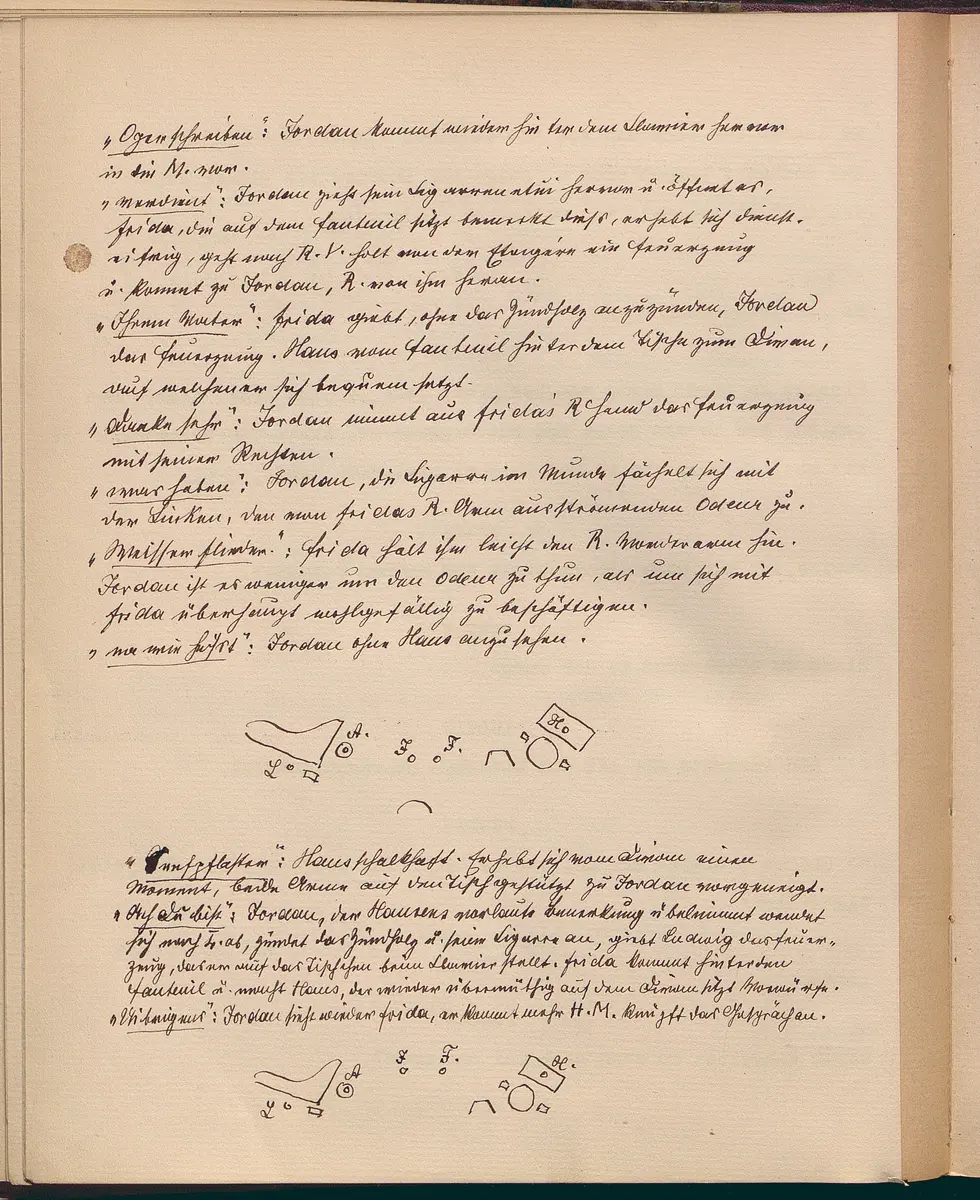 „Oper schreiben“: Jordan kommt wieder hinter dem Clavier hervor
in die M. vor.
„verdient“: Jordan zieht sein Cigarrenetui hervor u. öffnet es,
Frida, die auf dem Fauteuil sitzt bemerkt dies, erhebt sich dienst-
eifrig, geht nach R. V. holt von der Etagère ein Feuerzeug
u. kommt zu Jordan, R. von ihm heran.
„Ihrem Vater“: Frida giebt, ohne das Zündholz anzuzünden, Jordan
das Feuerzeug. Hans vom Fauteuil hinter dem Tische zum Divan,
auf welchen er sich bequem setzt.
„danke sehr“: Jordan nimmt aus Frida's R Hand das Feuerzeug
mit seiner Rechten.
„was haben“: Jordan, die Cigarre im Munde fächelt sich mit
der Linken, den von Fridas R. Arm ausströmenden Odeur zu.
„Weisser Flieder.“: Frida hält ihm leicht den R. Vorderarm hin.
Jordan ist es weniger um den Odeur zu thun, als um sich mit
Frida überhaupt wohlgefällig zu beschäftigen.
„na wie heisst“: Jordan ohne Hans anzusehen.
A.
J. F. H.
L
„Senfpflaster“: Hans schalkhaft. Erhebt sich vom Divan einen
Moment, beide Arme auf den Tisch gestützt zu Jordan vorgeneigt.
„Ach du bist“: Jordan, der Hansens vorlaute Bemerkung übelnimmt wendet
sich nach L. ab, zündet das Zündholz u. seine Cigarre an, giebt Ludwig das Feuer-
zeug, das er auf das Tischchen beim Clavier stellt. Frida kommt hinter den
Fauteuil u. macht Hans, der wieder übermüthig auf dem Divan sitzt Vorwürfe.
„Übrigens“: Jordan sieht wieder Frida, er kommt mehr H. M. knüpft das Gespräch an.
J. F.
A H.
L